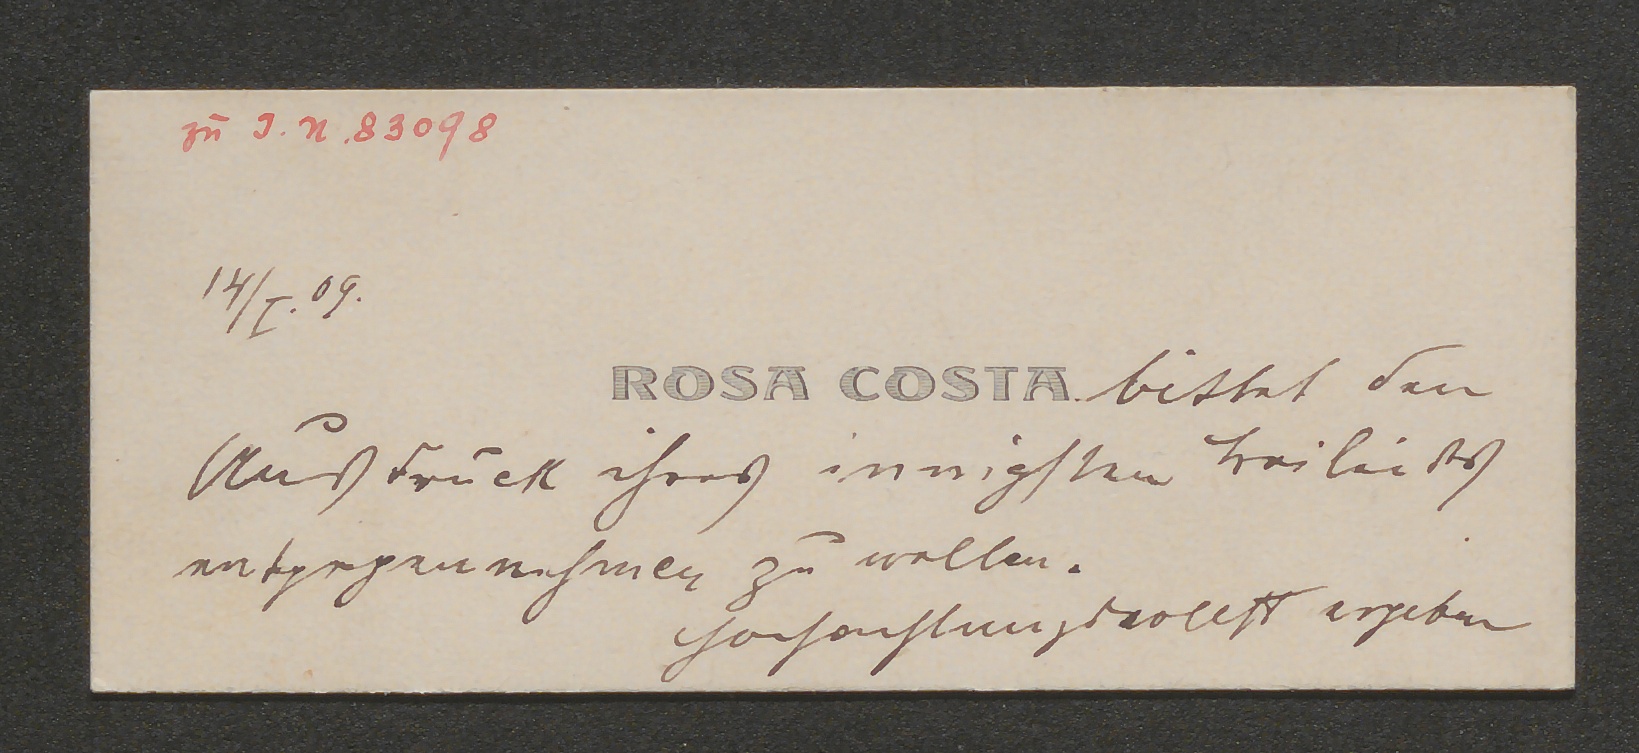 zu I. N. 83098
14/I. 09.
ROSA COSTA bittet den
Ausdruck ihres innigsten Beileids
entgegennehmen zu wollen.
Hochachtungsvollst ergeben